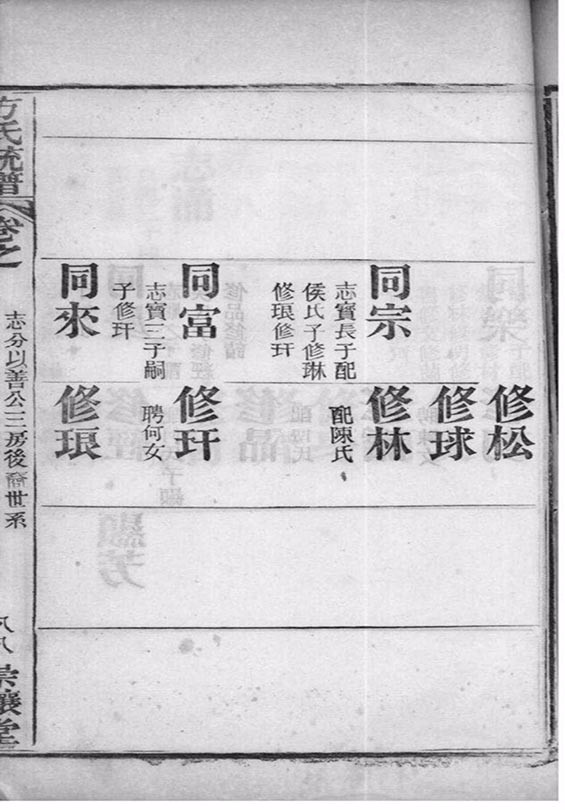 修松
修球
同宗
志寶長子配
侯氏子修琳
修琅修玕
修林
配陳氏
同富
志寶三子嗣
子修玕
修玕
聘何女
同來
修琅
方氏統譜
卷之
志分以善公三房後裔世系
八八
崇讓堂